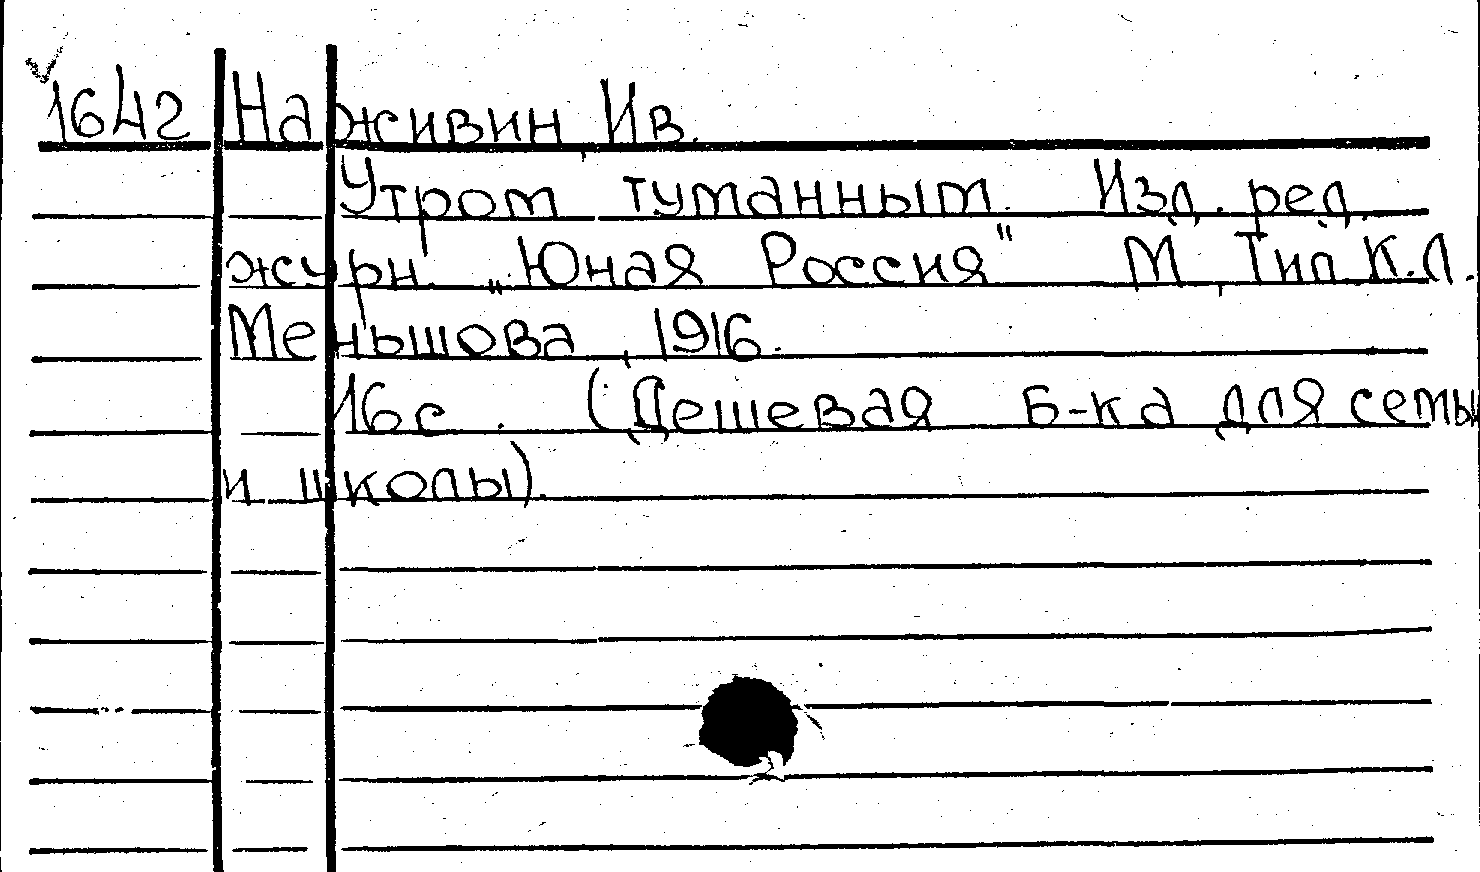 1642 Наживин, Ив.
Утром туманным. Изд. ред.
журн. „Юная Россия" М., Тип. К.Л.
Меньшова, 1916.
16 с. (Дешевая б-ка для семьи
и школы).